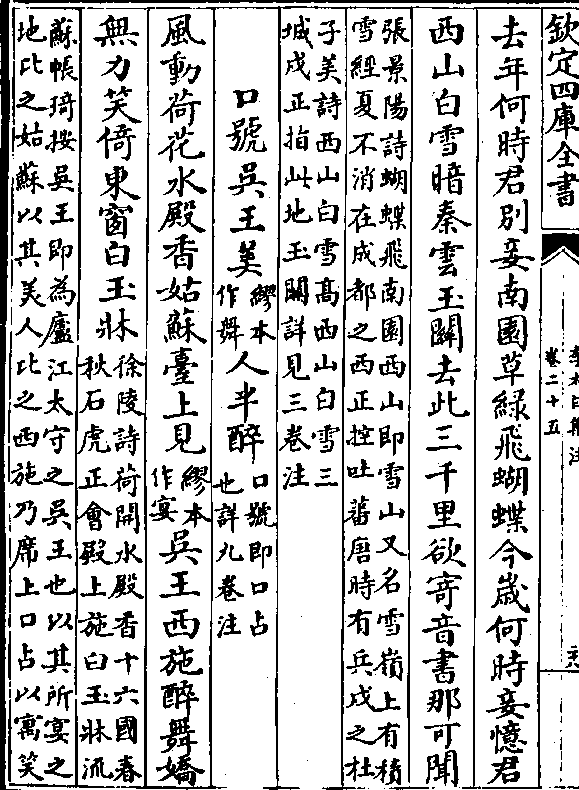 欽定四庫全書
李太白集注
卷二十五
去年何時君别妾南園草緑飛蝴蝶今歳何時妾憶君
西山白雪暗秦雲玉關去此三千里欲寄音書那可聞
張景陽詩蝴蝶飛南園西山即雪山又名雪嶺上有積
雪經夏不消在成都之西正控吐蕃唐時有兵戍之杜
子美詩西山白雪髙西山白雪三
城戍正指此地玉關詳見三卷注
口號吳王美繆本作舞人半醉口號即口占也詳九卷注
風動荷花水殿香姑蘇臺上見繆本作宴吳王西施醉舞嬌
無力笑倚東窗白玉牀徐陵詩荷開水殿香十六國春
秋石虎正會殿上施白玉牀流
蘇帳琦按吳王即為廬江太守之吳王也以其所宴之
地比之姑蘇以其美人比之西施乃席上口占以寓笑